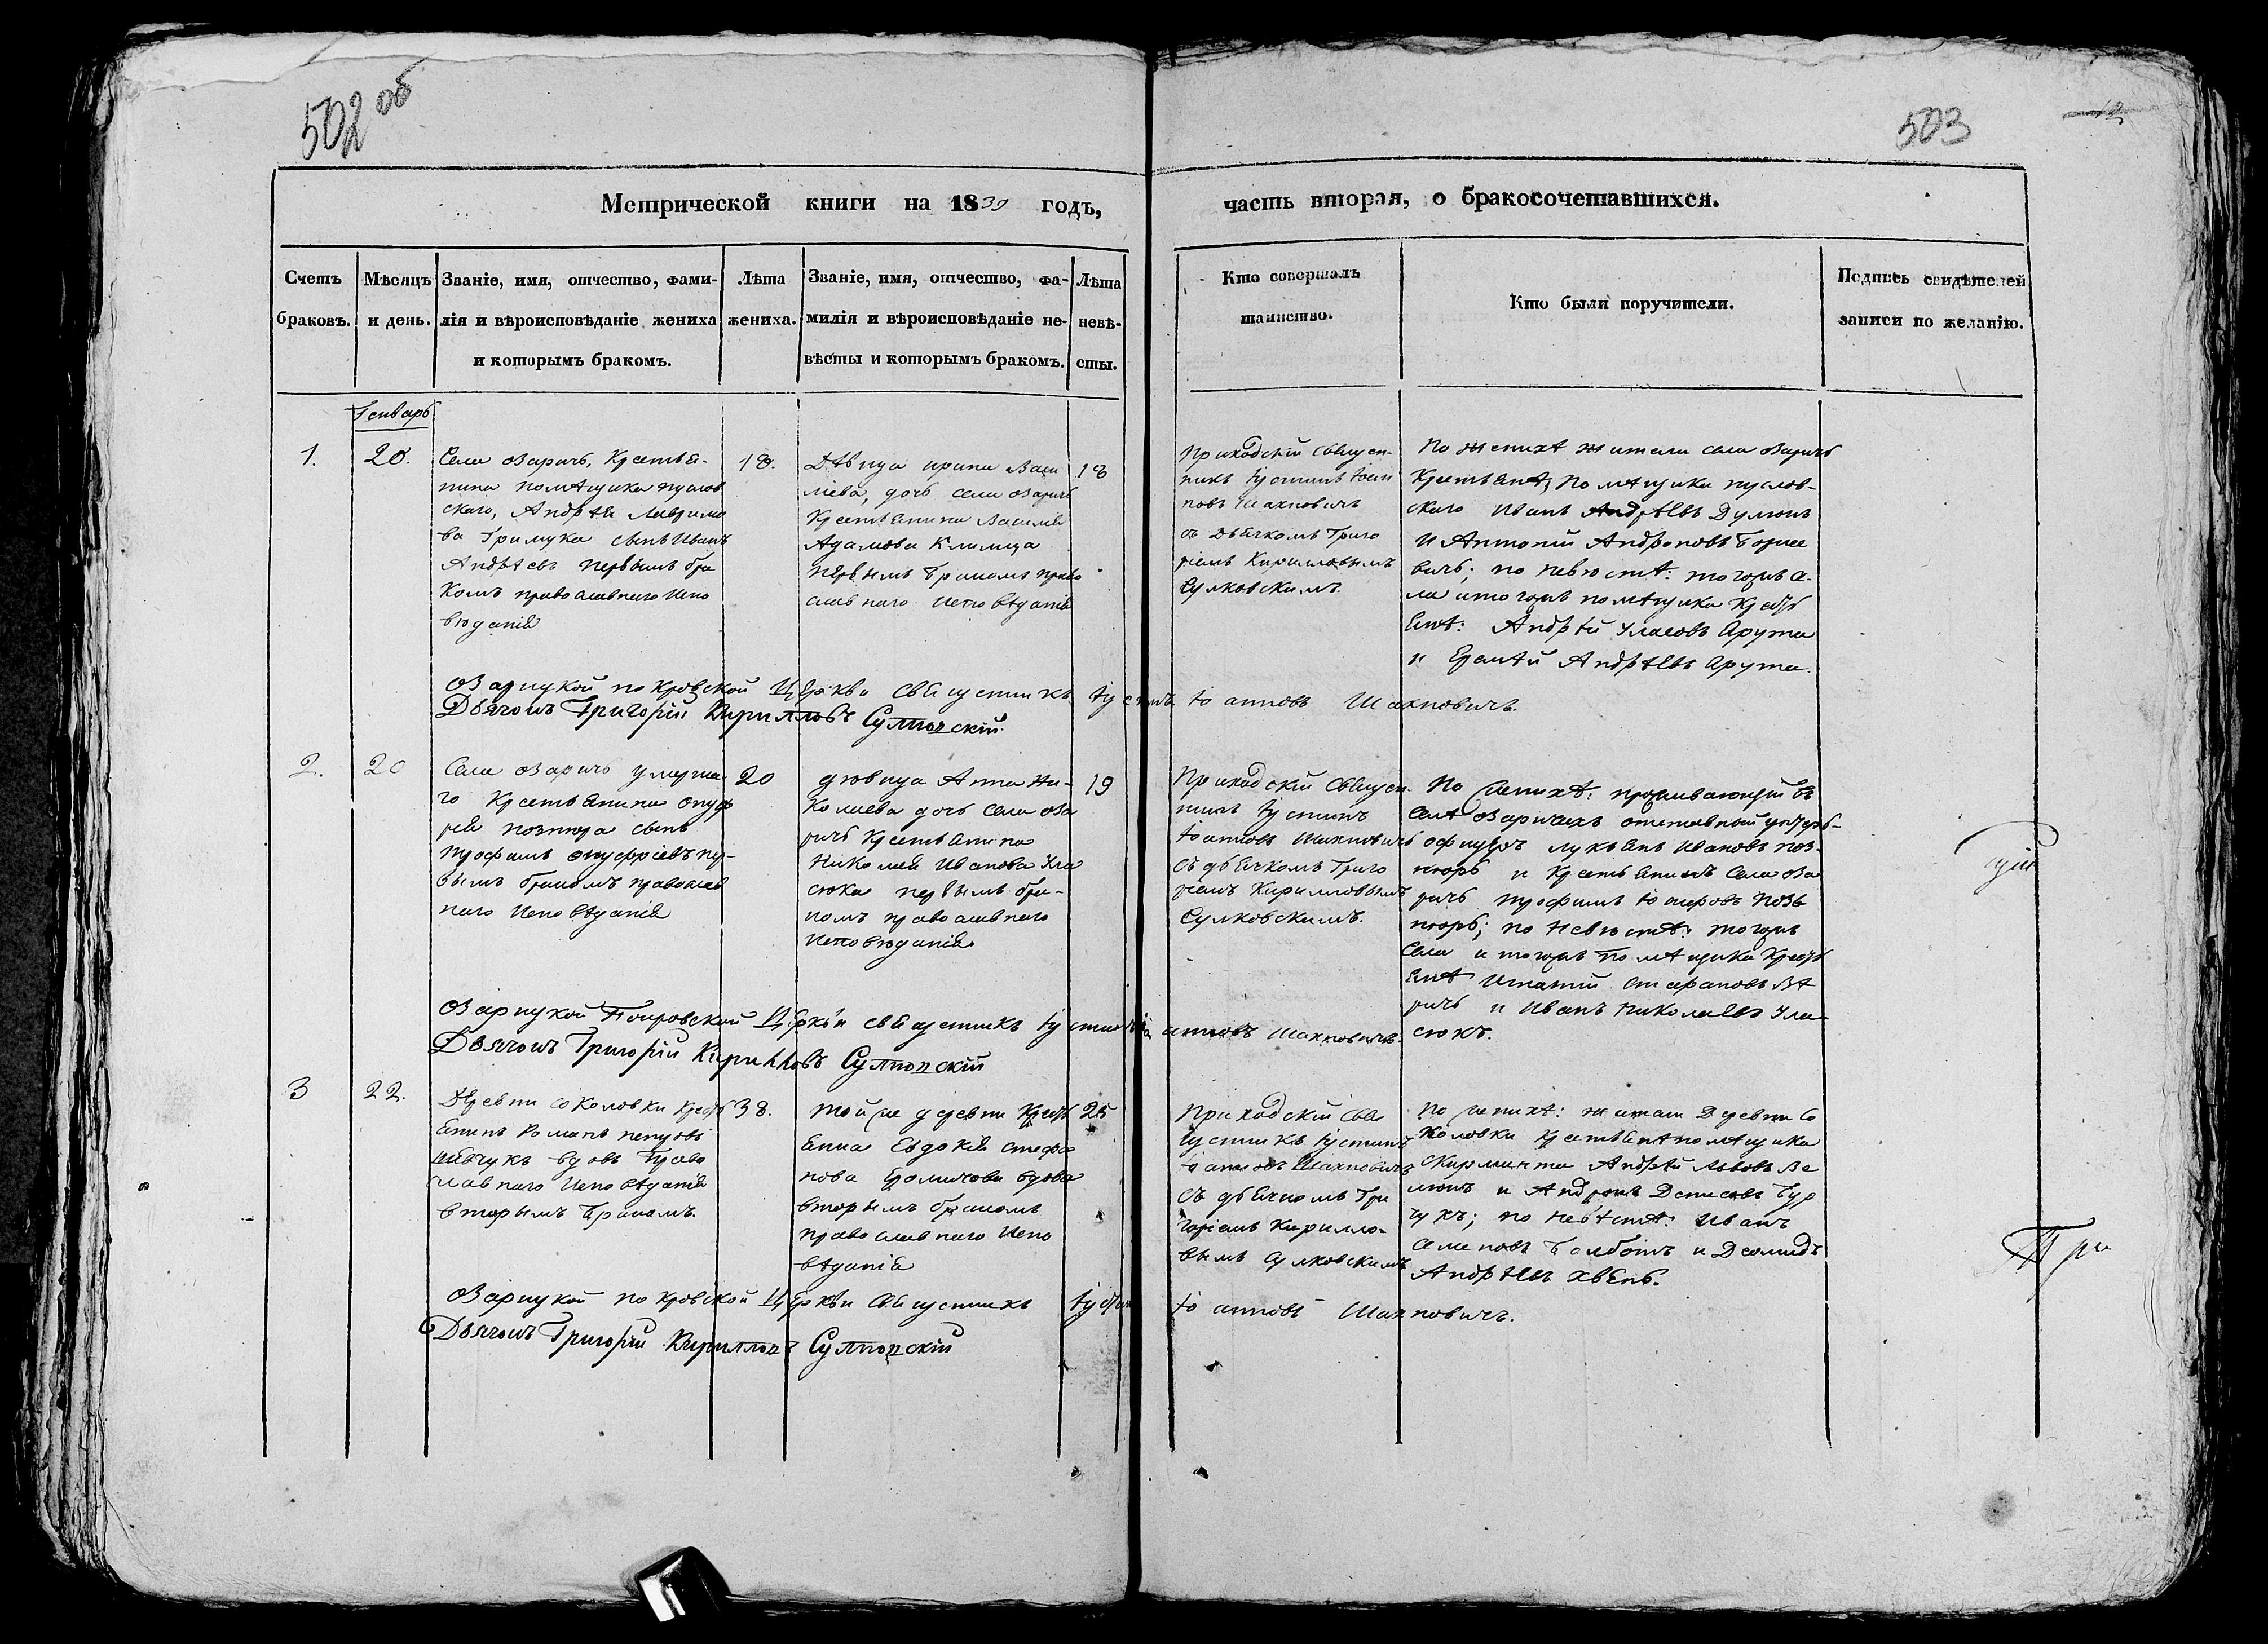 502 об
503
Метрической книги на 1839 годъ,
часть вторая, о бракосочетавшихся.
Счетъ браковъ.
Мѣсяцъ и день.
Званіе, имя, отчество, фами-
лія и вѣроисповѣданіе жениха
и которымъ бракомъ.
Лѣта
жениха.
Званіе, имя, отчество, фа-
милія и вѣроисповѣданіе не-
вѣсты и которымъ бракомъ.
Лѣта
невѣ-
сты.
Кто совершалъ
таинство.
Кто были поручители.
Подпись свидѣтелей
записи по желанію.
Генварь
1.
20.
Села Озаричъ, Крестья-
нина помѣщика пуслов
скаго, Андрѣя Лаврино
ва Гримука сынъ Иванъ
Андрѣевъ первымъ бра
комъ православнаго испо
вѣданія
18.
Дѣвица ирина Васи
ліева, дочь села Озаричъ
Крестьянина Василія
Адамова Климца
первымъ бракомъ право
славнаго исповѣданія
18
Приходскій Священ-
никъ Іустинъ Іоан
новъ Шахновичъ
съ дьячкомъ Григо
ріемъ Кирилловымъ
Сулковскимъ.
По женихѣ жители села Озаричъ
Крестьянѣ, помѣщика пуслов-
скаго Иванъ Андрѣевъ
и Антоній Андроновъ
вичъ; по невѣстѣ: тогожъ се-
ла итогожъ помѣщика Кресть
янѣ: Андрѣй Уласовъ Арута
и Ермѣй Андрѣевъ Арута.
Озарицкой покровской Церкви Священникъ Іустинъ Іоанновъ Шахновичъ.
Дьячокъ Григорій Кирилловъ Сулковскій.
2.
20
Села Озаричъ умерша-
го Крестьянина Онуф
рія познюра сынъ
Трофимъ Онуфріевъ пер-
вымъ бракомъ православ
наго исповѣданія
20
дѣвица Анна Ни-
колаева дочь Села Оза
ричъ Крестьянина
Николая Иванова Ула
сюка первымъ бра-
комъ православнаго
исповѣданія.
19
Приходскій Священ-
никъ Іустинъ
Іоанновъ Шахновичъ
Съ дьячкомъ Григо
ріемъ Кирилловымъ
Сулковскимъ.
По женихѣ: проживающій въ
селѣ Озаричахъ отставной унтеръ-
офицеръ лукьянъ Ивановъ поз-
нюръ и Крестьянинъ Села Оза
ричъ Трофимъ позь
нюръ; по невѣстѣ: тогожъ
Села и тогожъ помѣщика Кресть
янѣ Игнатій
ричъ и Иванъ Николаевъ Ула-
сюкъ.
Озарицкой Покровской Церкви священникъ Іустинъ Іоанновъ Шахновичъ.
Дьячокъ Григорій Кирилловъ Сулковскій
3
22.
Деревни Соколовки Кресть
янинъ Романъ
Шевчукъ вдовъ Право
славнаго исповѣданія
вторымъ бракомъ.
38.
Той же деревни Кресть
янка Евдокія Стефа
нова вдова
вторымъ бракомъ
православнаго испо
вѣданія
25
Приходскій Свя
щенникъ Іустинъ
Іоанновъ Шахновичъ
Съ дьячкомъ Гри
горіемъ Кирилло-
вымъ Сулковскимъ
По женихѣ: жители Деревни Со
коловки Крестьянѣ помѣщика
Скирмунта Андрѣй Львовъ Ве
и Денисовъ
по невѣстѣ: Иванъ
Семеновъ и Демидъ
Андрѣевъ
Озарицкой покровской Церкви Священникъ Іустинъ Іоанновъ Шахновичъ.
Дьячокъ Григорій Кирилловъ Сулковскій